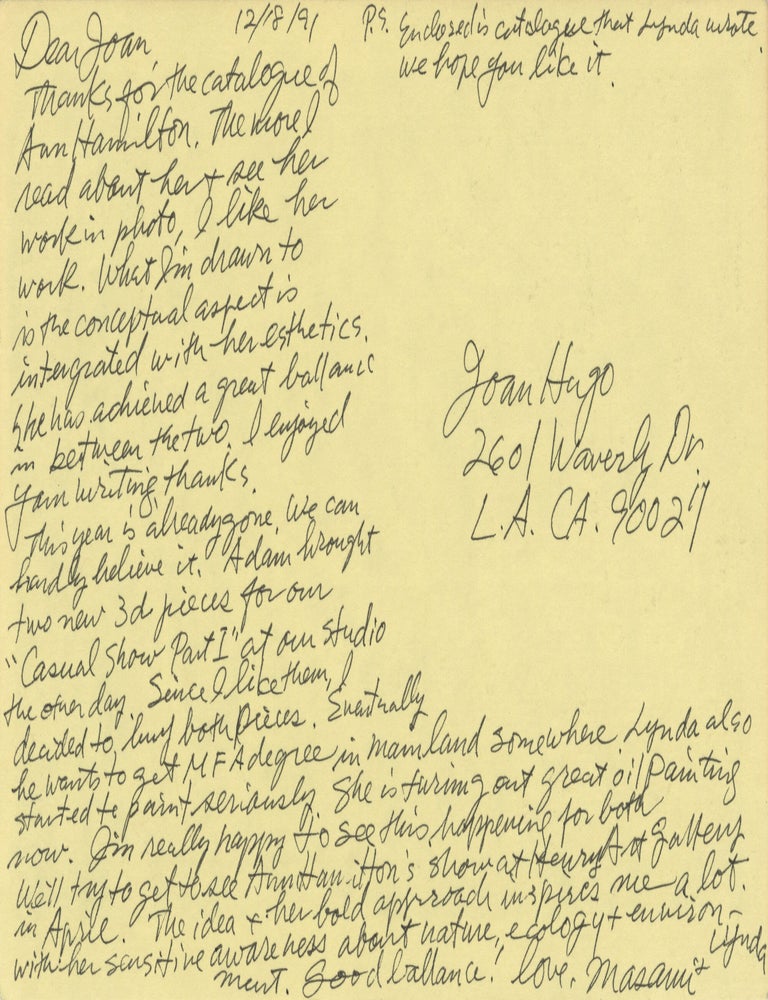 12/18/91
Dear Joan
Thanks for the catalogue of
Ann Hamilton. The more I
read about her + see her
work in photo, I like her
work. What I'm drawn to
is the conceptual aspect is
intergrated with her esthetics.
She has achieved a great ballance
in between the two. I enjoyed
your writing thanks.
This year is already gone. We can
hardly believe it. Adam brought
two new 3d pieces for our
"Casual Show Part I" at our studio
the other day. Since I like them, I
decided to buy both pieces. Eventually
he wants to get MFA degree in mainland somewhere Lynda also
started to paint seriously. She is turing out great oil Painting
now. I'm really happy to see this happening for both
We'll try to get to see Ann Hamilton's show at Henry Art Gallery
in April. The idea + her bold approach inspires me a lot.
with her sensitive awareness about nature, ecology + environ-
ment. Good ballance! love, Masami +
Lynda
P.S. Enclosed is catalogue that Lynda wrote.
We hope you like it.
Joan Hugo
2601 Waverly Dr.
L.A. CA. 90027